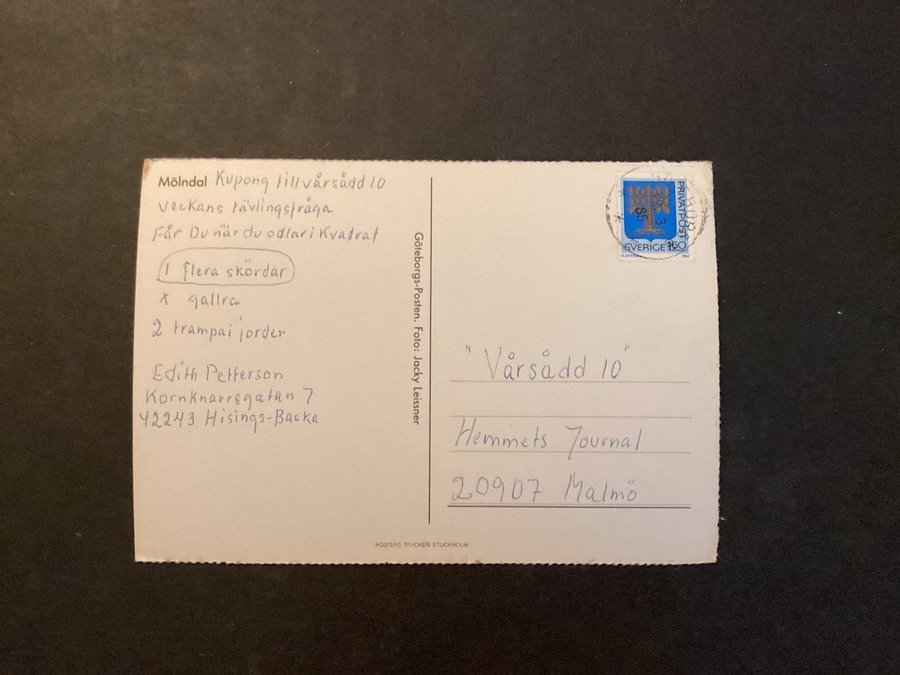 Mölndal Kupong till vårsådd 10
Veckans tävlingsfråga
Får Du när du odlar i Kvadrat
1 flera skördar
x gallra
2 trampa i jorden
Edith Petterson
Kornknarrsgatan 7
42243 Hisings-Backa
Göteborgs-Posten. Foto: Jacky Leissner
POSTENS TRYCKERI STOCKHOLM
PRIVATPOST
SVERIGE 160
"Vårsådd 10"
Hemmets Journal
20907 Malmö